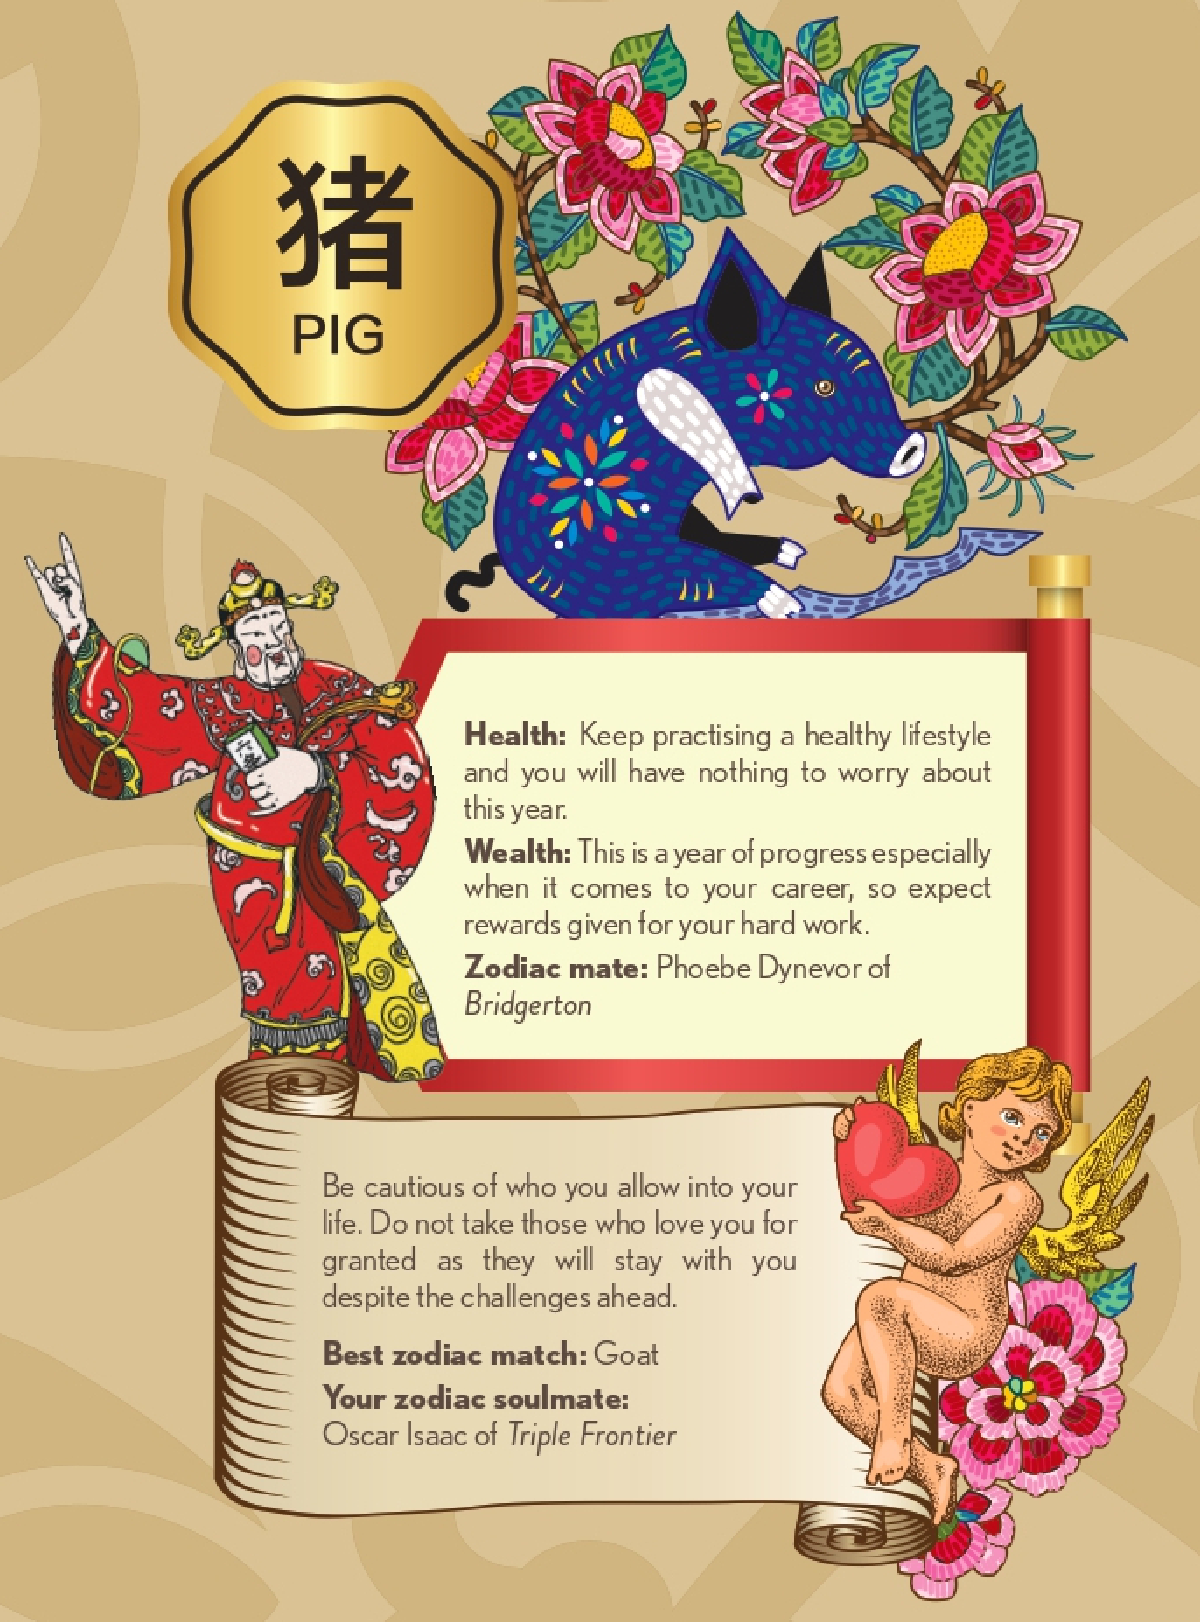 猪
PIG
Health: Keep practising a healthy lifestyle
and you will have nothing to worry about
this year.
Wealth: This is a year of progress especially
when it comes to your career, so expect
rewards given for your hard work.
Zodiac mate: Phoebe Dynevor of
Bridgerton
Be cautious of who you allow into your
life. Do not take those who love you for
granted as they will stay with you
despite the challenges ahead.
Best zodiac match: Goat
Your zodiac soulmate:
Oscar Isaac of Triple Frontier